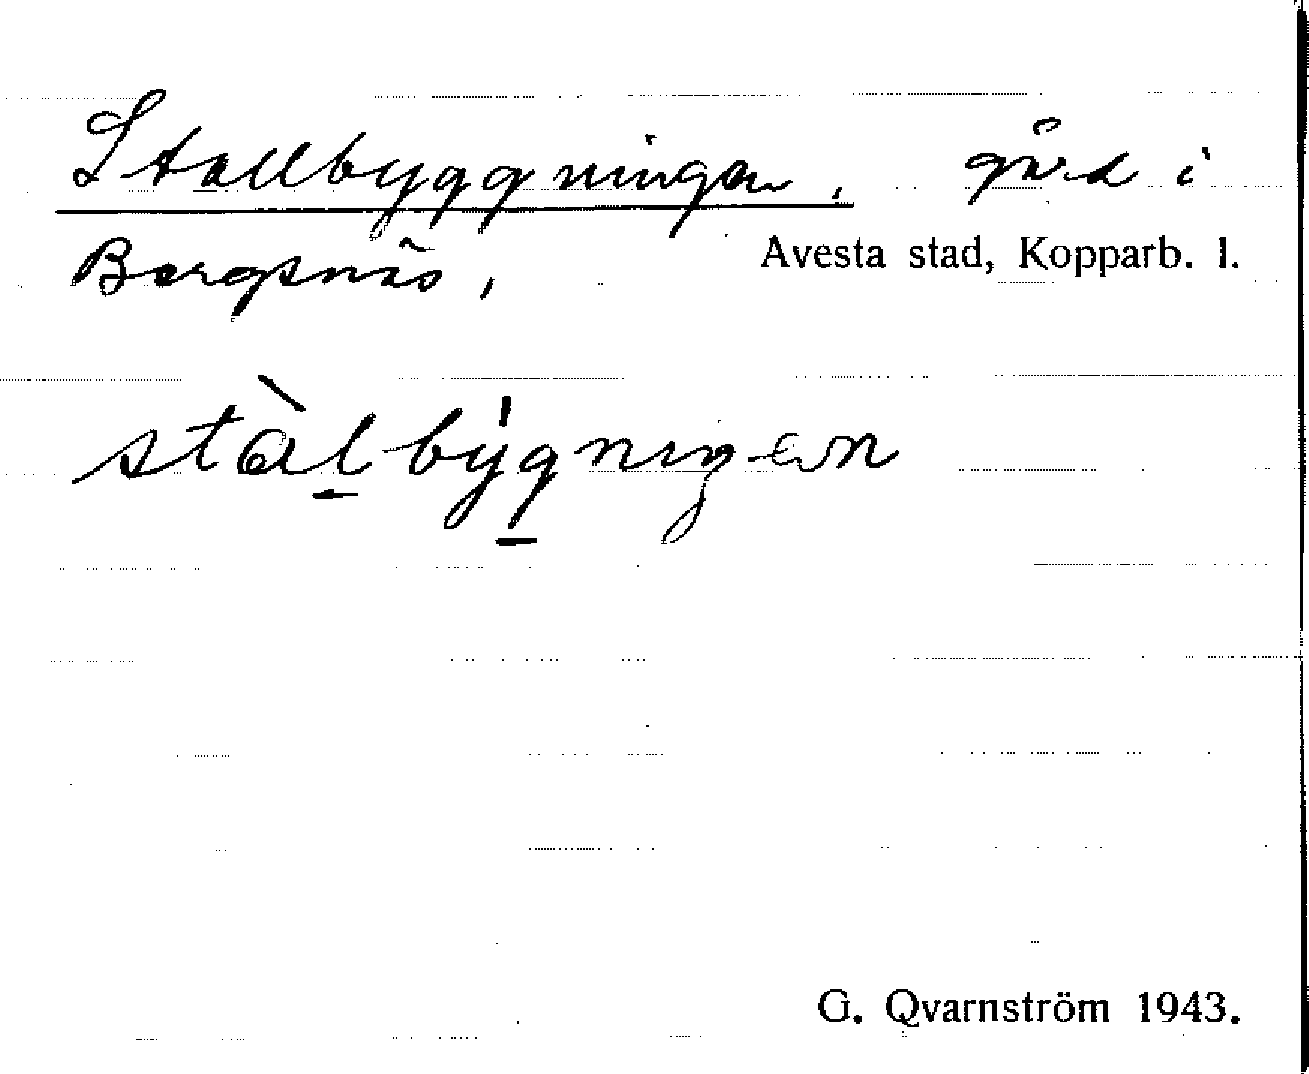 Stallbyggningen, gård i
Bergsnäs, Avesta stad, Kopparb. l.
stàl̠by̍g̠niŋən
G. Qvarnström 1943.